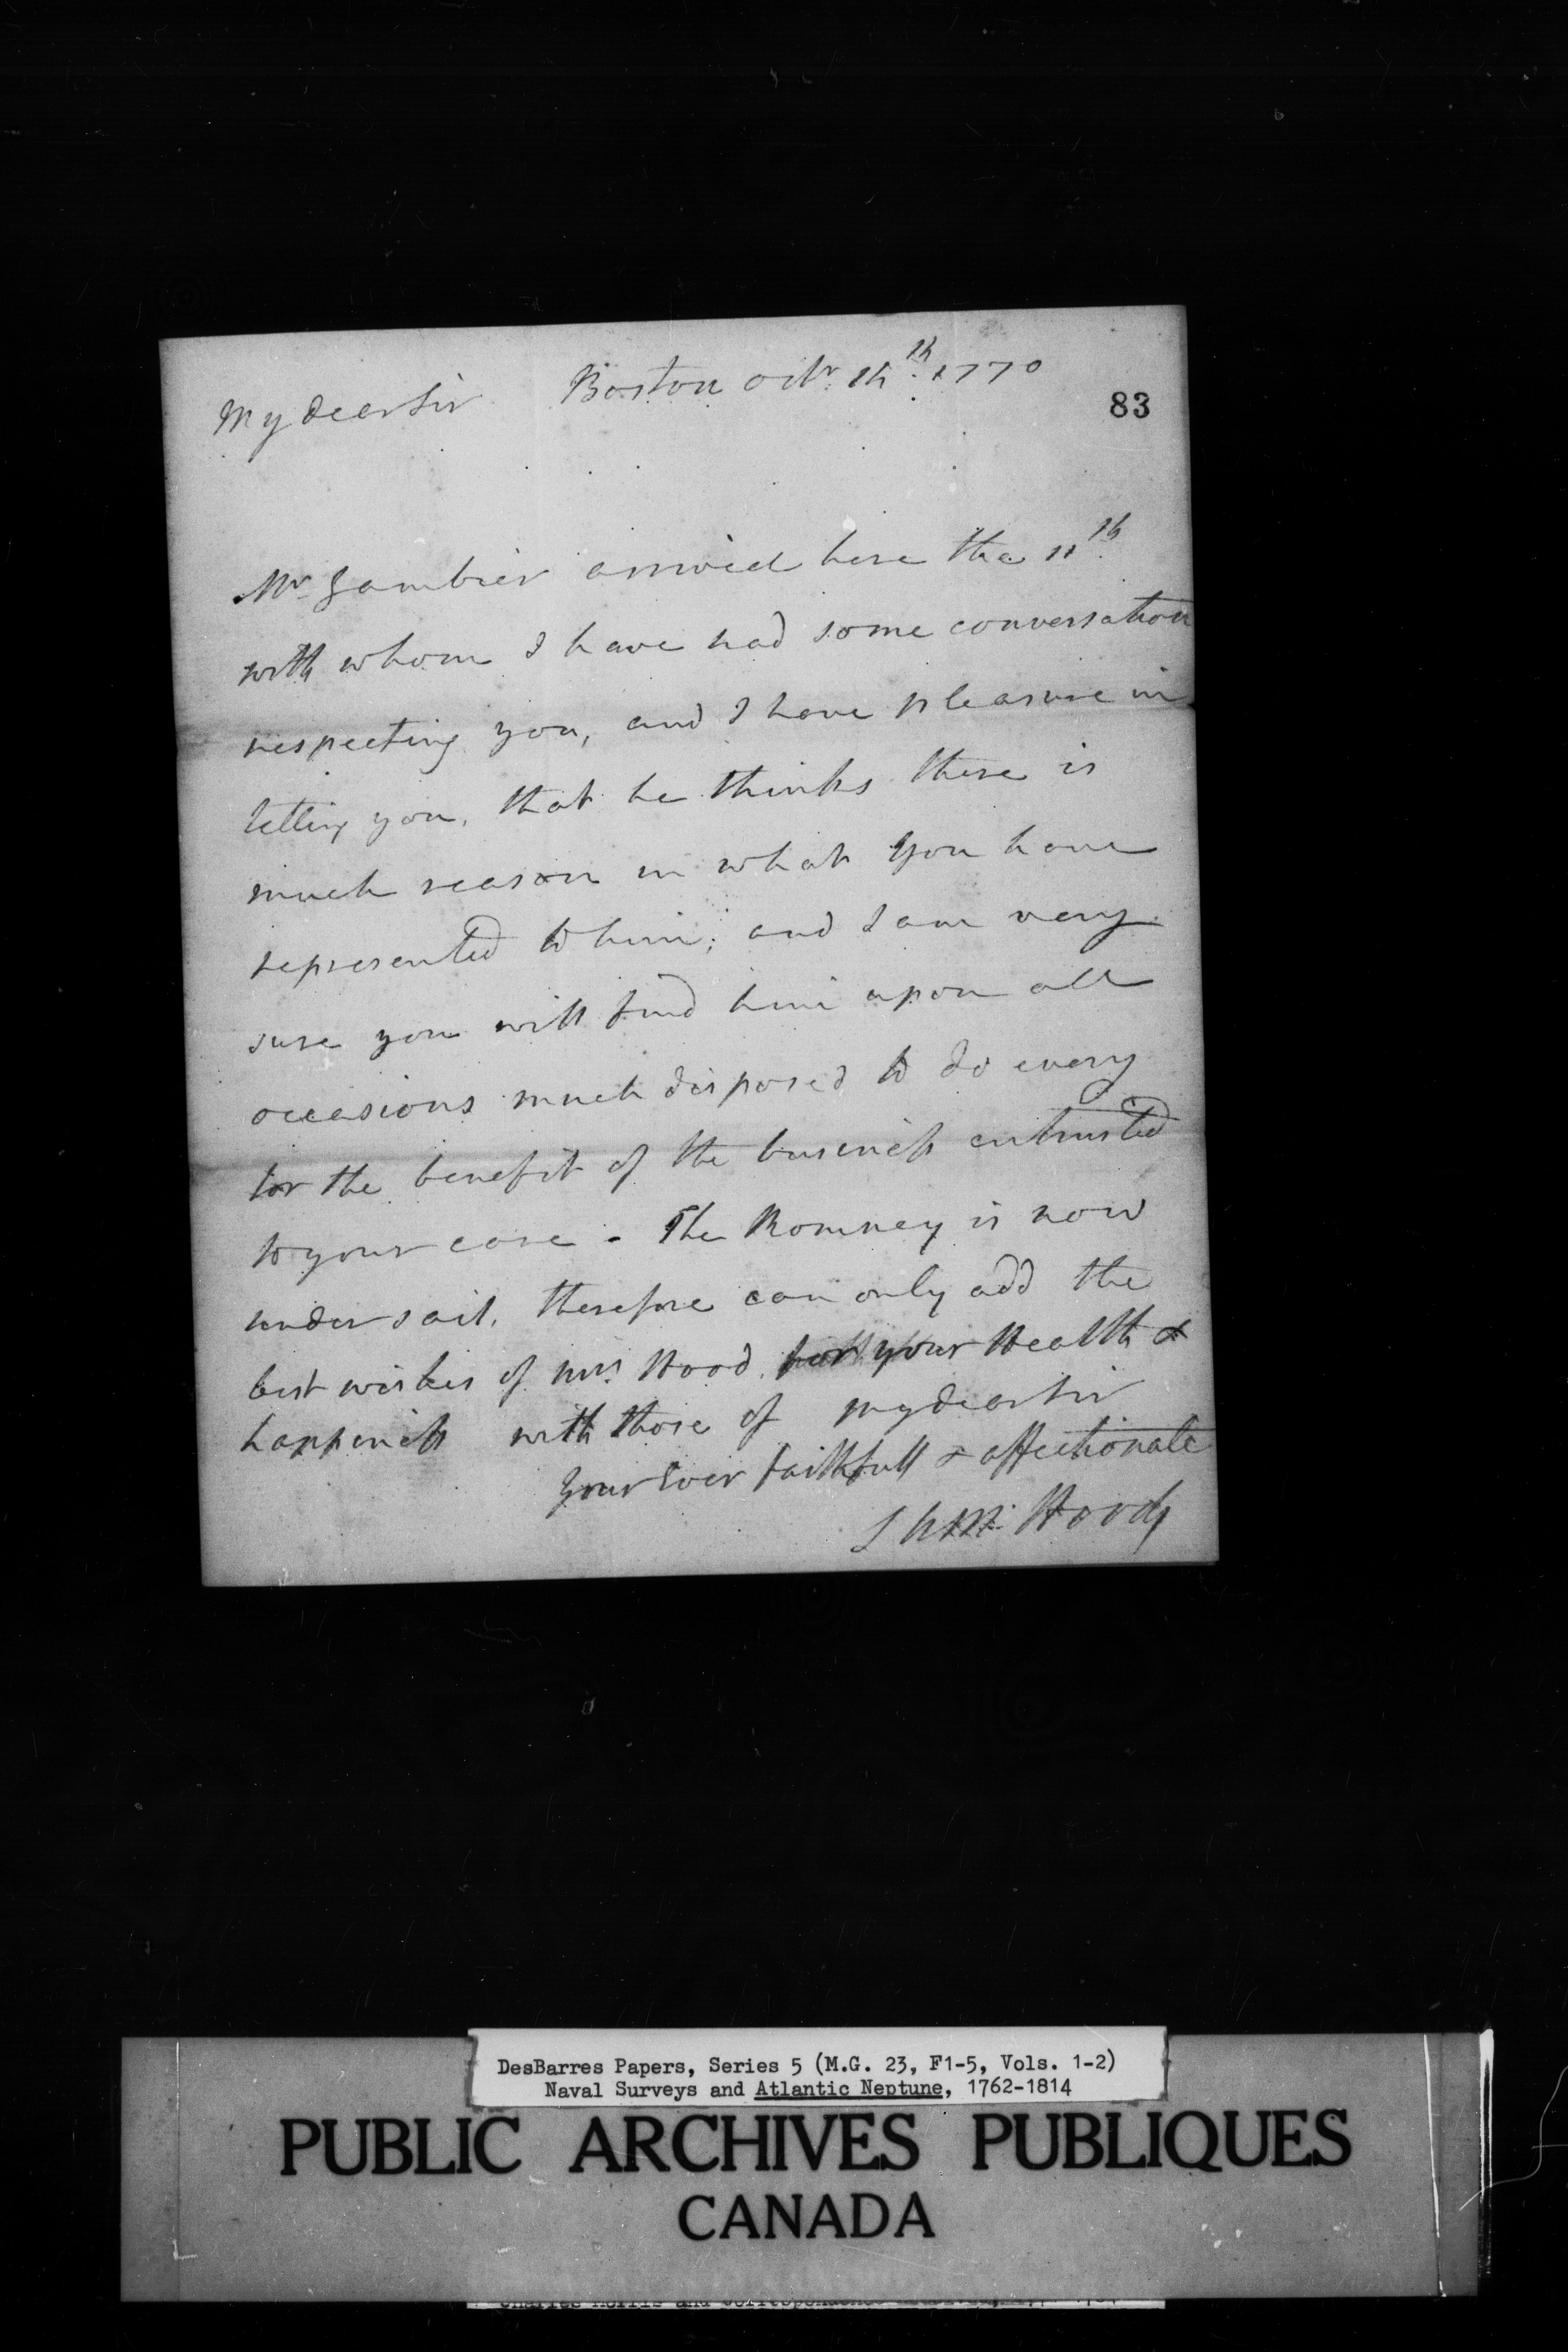 Boston octr. 14th. 1770
My dear Sir
83
Mr Gambier arrived here the 11th.
with whom I have had some conversation
respecting you, and I have pleasure in
telling you, that he thinks there is
much reason in what you have
represented to him; and I am very
sure you will find him upon all
occasions much disposed to do every
for the benefit of the business entrusted
to your care. The Romney is now
under sail, therefore can only add the
best wishes of Mrs. Hood for your Health &
happiness with those of my dear Sir
your Ever faithfull & affectionate
Sam: Hood
DesBarres Papers, Series 5 (M.G. 23, F1-5, Vols. 1-2)
Naval Surveys and Atlantic Neptune, 1762-1814
PUBLIC ARCHIVES PUBLIQUES
CANADA